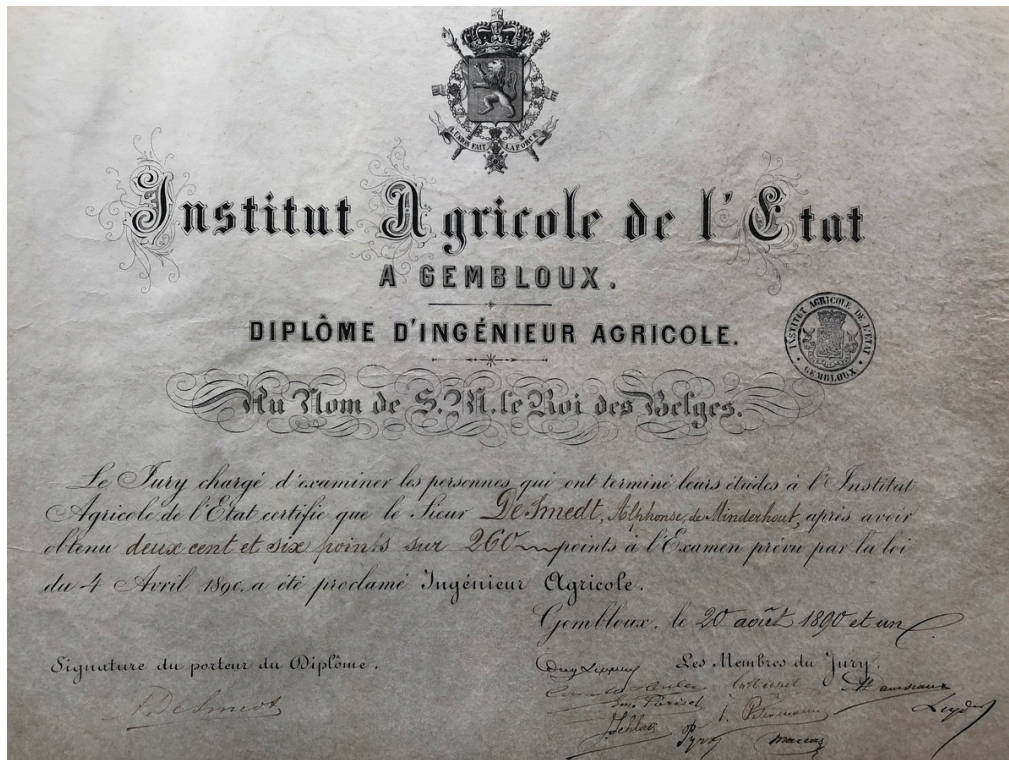 L'UNION FAIT LA FORCE
Institut Agricole de l'Etat
A GEMBLOUX.
DIPLÔME D'INGÉNIEUR AGRICOLE.
INSTITUT AGRICOLE DE L'ETAT
GEMBLOUX
Au Nom de S. M. le Roi des Belges.
Le Jury chargé d'examiner les personnes qui ont terminé leurs études à l'Institut
Agricole de l'Etat certifie que le Sieur De Smedt, Alphonse, de Minderhout, après avoir
obtenu deux cent et six points sur 260 points à l'Examen prévu par la loi
du 4 Avril 1890, a été proclamé Ingénieur Agricole.
Gembloux, le 20 août 1890 et un.
Signature du porteur du Diplôme.
Les Membres du Jury.
A. De Smedt
Parisel
Petermann
Leyder
Pyro
Marcas